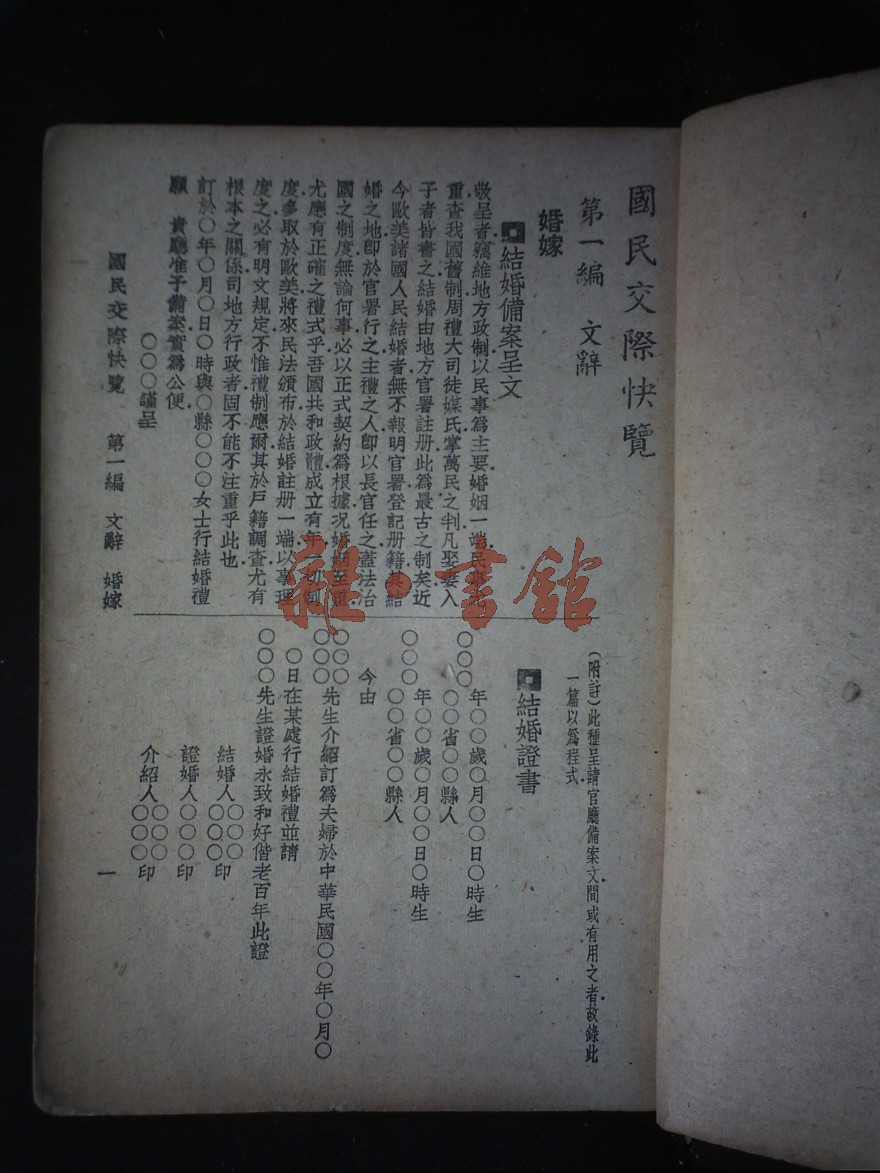 國民交際快覽
第一編　文辭
婚嫁
結婚備案呈文
敬呈者竊維地方政制以民事爲主要婚姻一端民
重查我國舊制周禮大司徒媒氏掌萬民之判凡娶妻入
子者皆書之結婚由地方官署註册此爲最古之制矣近
今歐美諸國人民結婚者無不報明官署登記册籍其結
婚之地卽於官署行之主禮之人卽以長官任之蓋法治
國之制度無論何事必以正式契約爲根據况婚姻至重
尤應有正確之禮式乎吾國共和政體成立有年一切制
度多取於歐美將來民法頒布於結婚註册一端以事理
度之必有明文規定不惟禮制應爾其於戶籍調查尤有
根本之關係司地方行政者固不能不注重乎此也
訂於○年○月○日○時與○縣○○○女士行結婚禮
願　貴廳准予備案實爲公便
○○○謹呈
(附註)此種呈請官廳備案文間或有用之者故錄此
一篇以爲程式
結婚證書
○○○　年○○歲○月○○日○時生
○○省○○縣人
○○○　年○○歲○月○○日○時生
○○省○○縣人
今由
○○○
○○○先生介紹訂爲夫婦於中華民國○○年○月○
○日在某處行結婚禮並請
○○○先生證婚永致和好偕老百年此證
結婚人○○○
○○○印
證婚人○○○印
介紹人○○○
○○○印
國民交際快覽　第一編　文辭　婚嫁
一
雜·書館